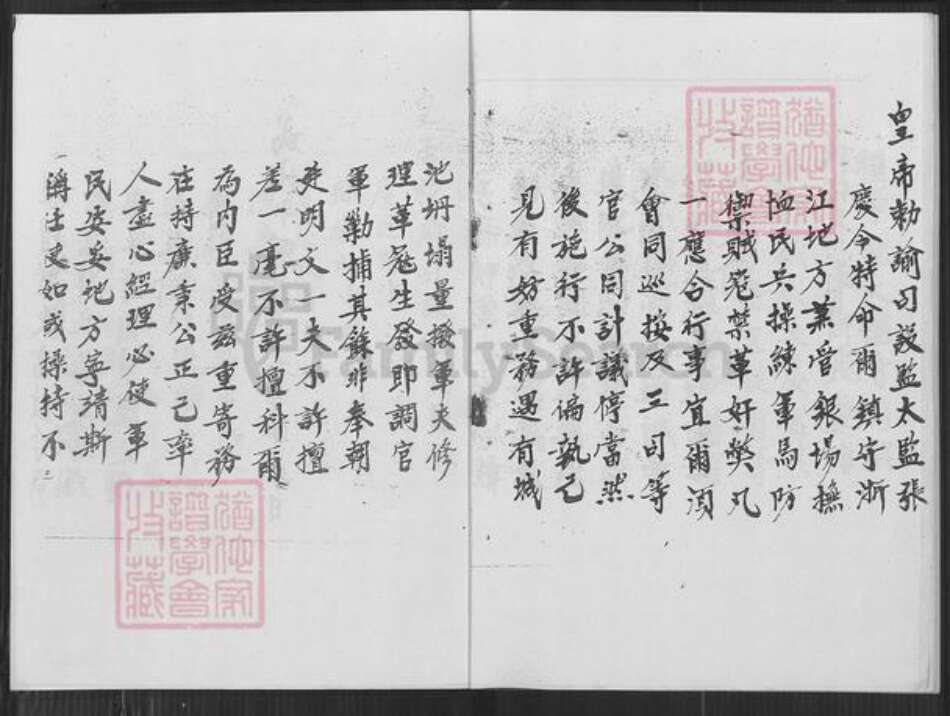 皇帝勅諭司設監太監張
慶今特命爾鎮守浙
江地方兼管銀場撫
恤民兵操練軍馬防
禦賊寇禁革奸弊凡
一應合行事宜爾須
會同巡按及三司等
官公同計議停當然
後施行不許偏執己
見有妨重務遇有城
池坍塌量撥軍夫修
理草寇生發即調官
軍勦捕其餘非奉朝
廷明文一夫不許擅
差一毫不許擅科爾
為內臣受茲重寄務
在持廉秉公正己率
人盡心經理必使軍
民安妥地方寧靖斯
稱任使如或操持不
FamilySearch
譜學會
特藏
譜學會
特藏